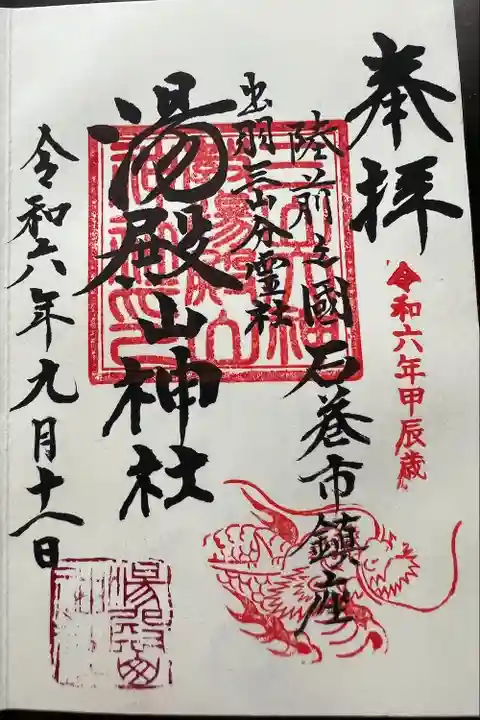 奉拝
令和六年甲辰歳
陸前之國石巻市鎮座
出羽三山分霊社
湯殿山神社
令和六年九月十八日